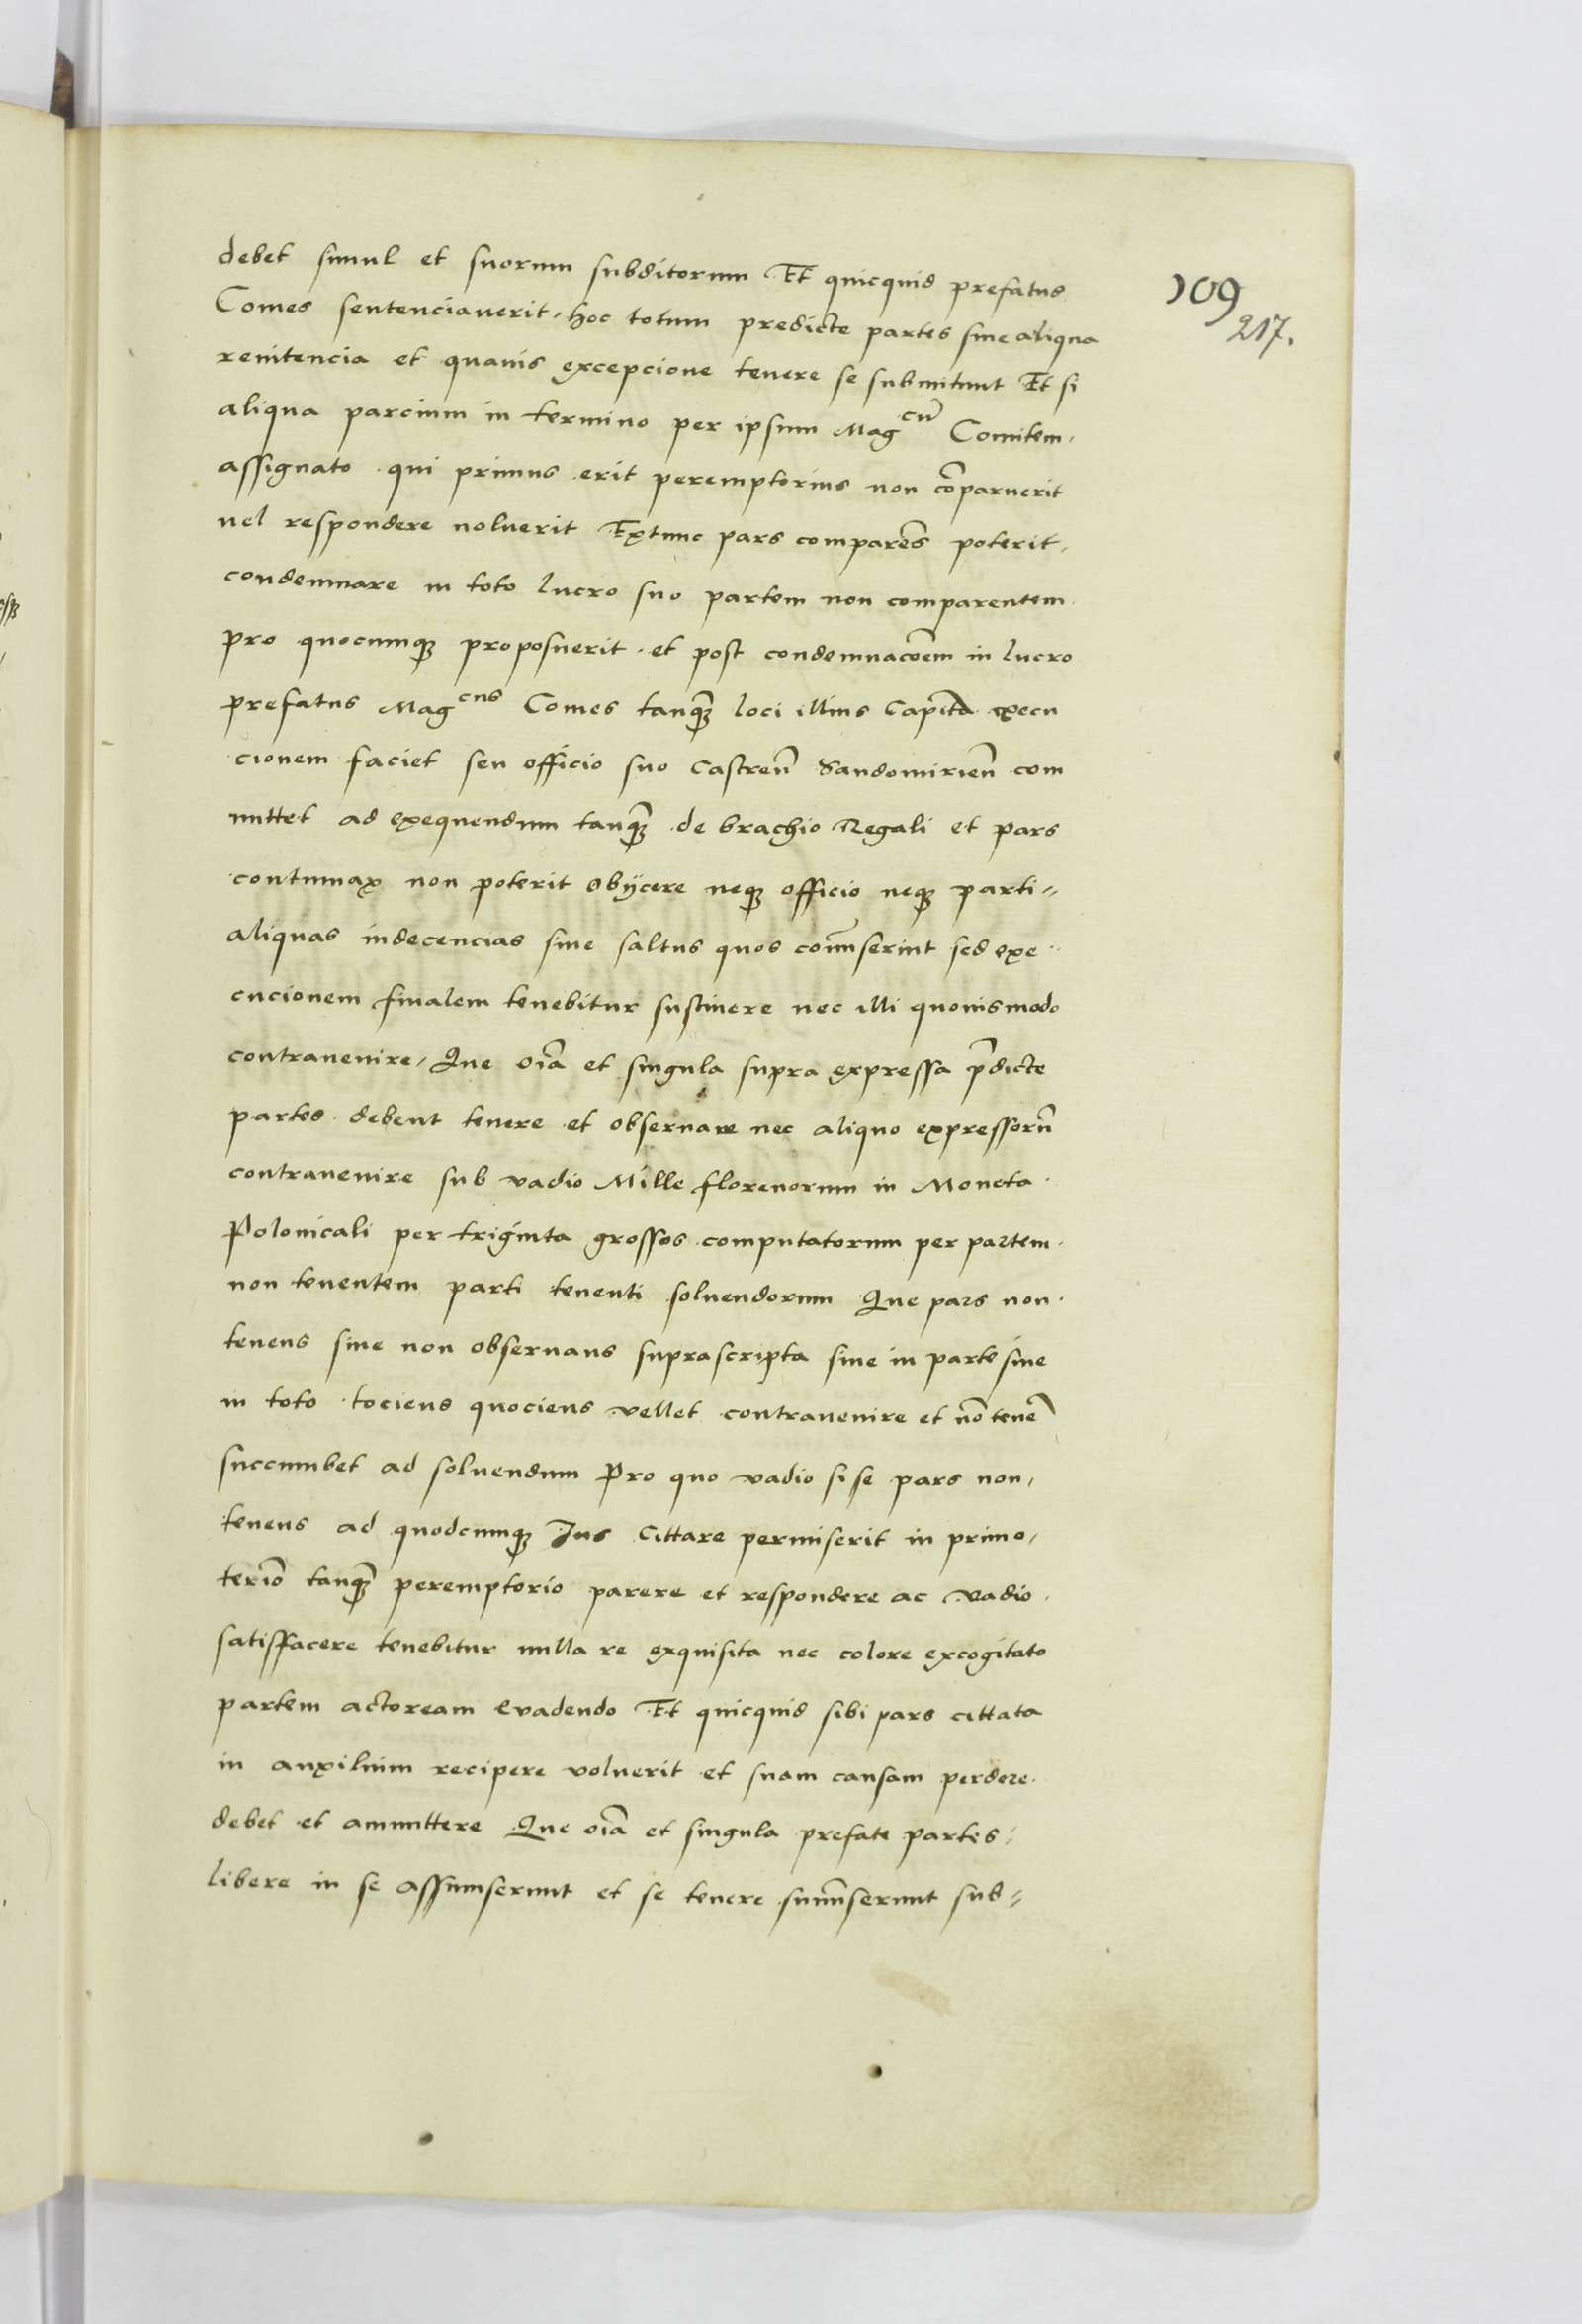 debet simul et suorum subditorum Et quicquid prefatus
109
Comes sentenciauerit, hoc totum predicte partes sine aliqua
217.
renitencia et quauis excepcione tenere se submitunt Et si
aliqua parcium in termino per ipsum Magcū Comitem,
assignato qui primus erit peremptorius non cōparuerit
uel respondere noluerit Extunc pars comparēs poterit,
condemnare in toto lucro suo partem non comparentem
pro quocumqꝫ proposuerit et post condemnacōem in lucro
prefatus Magcus Comes tanqꝫ loci illius Capitā execu
cionem faciet seu officio suo Castreñ Sandomirieñ com
mittet ad exequendum tanqꝫ de brachio Regali et pars
contumax non poterit obÿcere neqꝫ officio neqꝫ parti=
aliquas indecencias siue saltus quos com̄serint sed exe
cucionem finalem tenebitur sustinere nec illi quouismodo
contrauenire, Que oīa et singula supra expressa p̄dicte
partes debent tenere et obseruare nec aliquo expressorū
contrauenire sub vadio Mille florenorum in Moneta
Polonicali per triginta grossos computatorum per partem
non tenentem parti tenenti soluendorum Que pars non
tenens siue non obseruans suprascripta siue in parte siue
in toto tociens quociens vellet contrauenire et nō tenē
succumbet ad soluendum Pro quo vadio si se pars non,
tenens ad quodcumqꝫ Jus Cittare permiserit in primo,
teriō tanqꝫ peremptorio parere et respondere ac vadio
satisffacere tenebitur nulla re exquisita nec colore excogitato
partem actoream evadendo Et quicquid sibi pars cittata
in auxilium recipere voluerit et suam causam perdere
debet et ammittere Que oīa et singula prefate partes,
libere in se assumserunt et se tenere sum̄serunt sub=